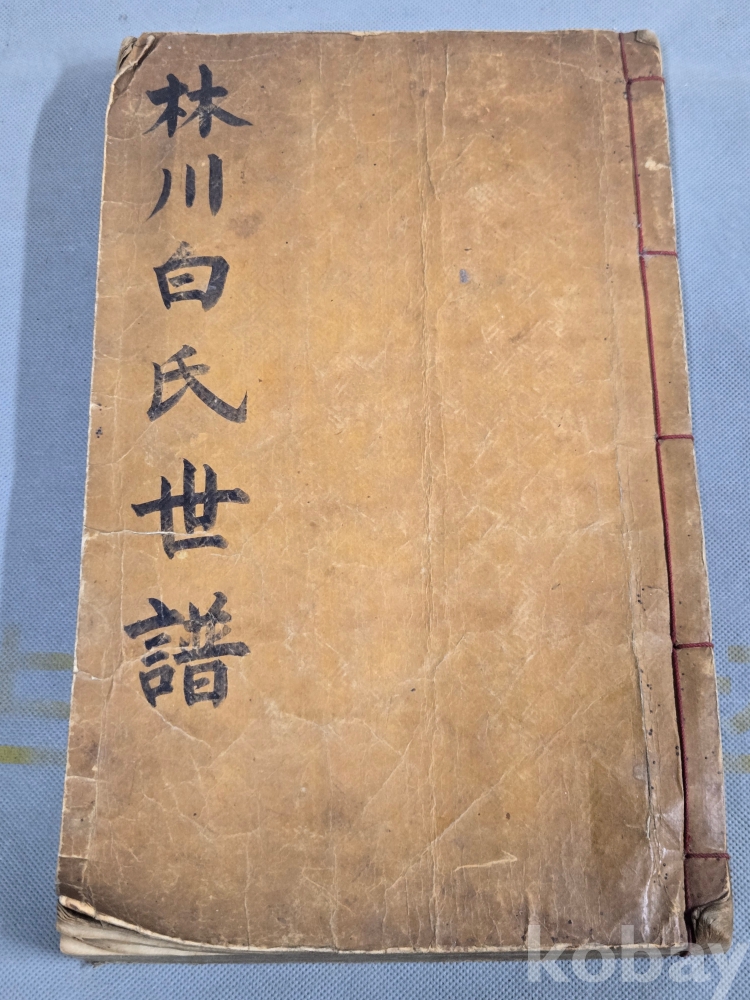 林川白氏世譜
kobay